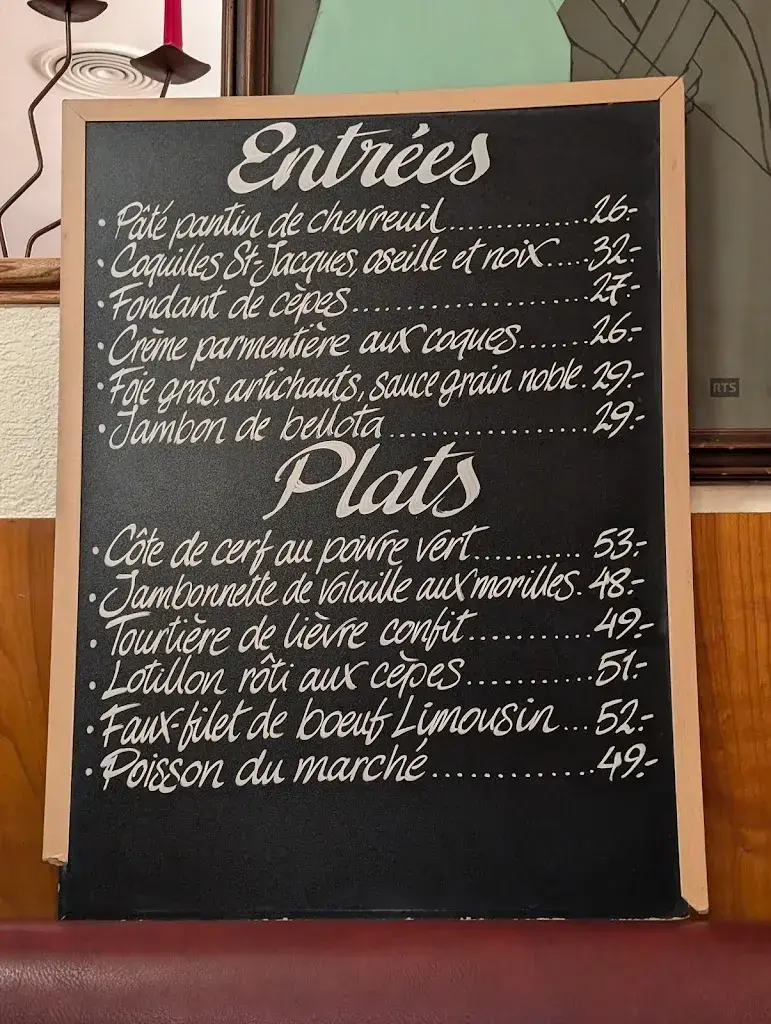 Entrées
• Pâté pantin de chevreuil..............26.-
• Coquilles St-Jacques, oseille et noix.....32.-
• Fondant de cèpes......................27.-
• Crème parmentière aux coques.......26.-
• Foie gras, artichauts, sauce grain noble.29.-
• Jambon de bellota.....................29.-
Plats
• Côte de cerf au poivre vert..........53.-
• Jambonnette de volaille aux morilles.48.-
• Tourtière de lièvre confit............49.-
• Cotillon rôti aux cèpes............51.-
• Faux-filet de boeuf Limousin...52.-
• Poisson du marché................49.-
RTS